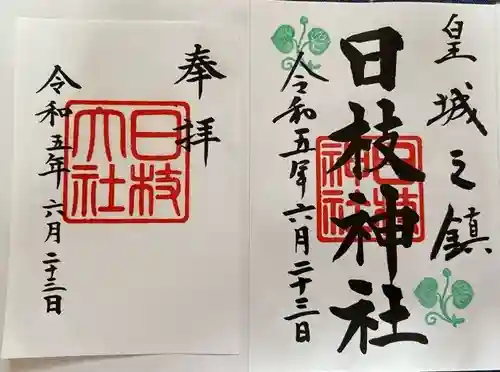 皇城之鎮
日枝神社
日枝神社
令和五年六月二十三日
奉拝
日枝大社
令和五年六月二十三日